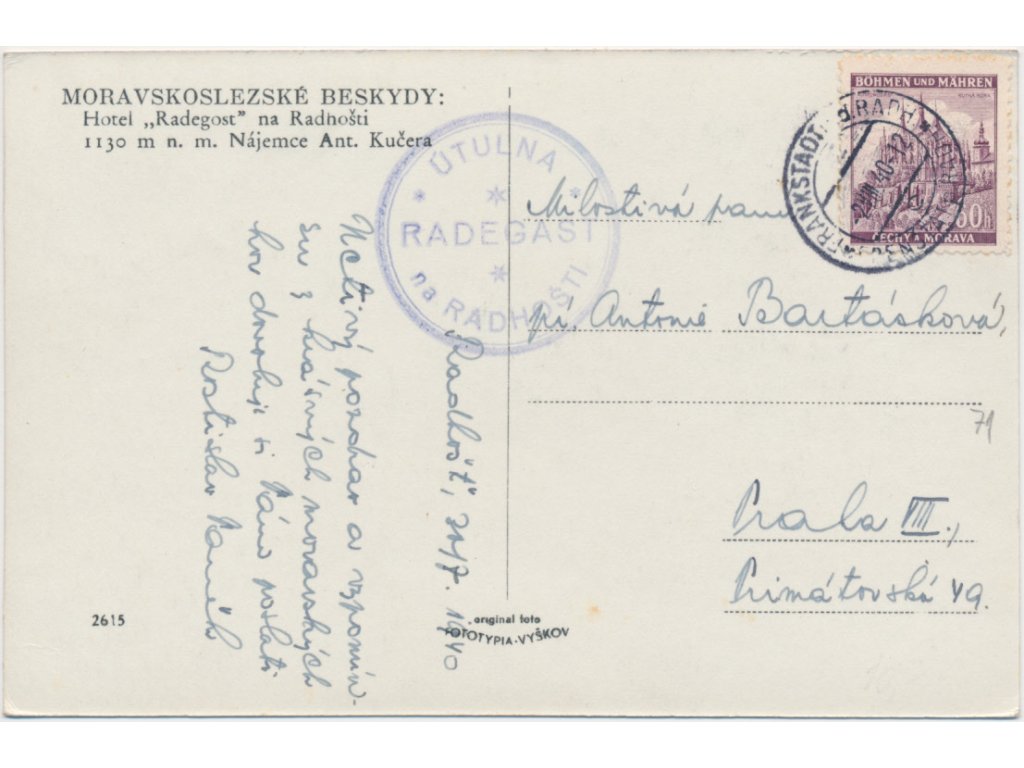 MORAVSKOSLEZSKÉ BESKYDY:
Hotel „Radegost" na Radhošti
1130 m n. m. Nájemce Ant. Kučera
ÚTULNA
RADEGAST
na RADHOŠTI
BÖHMEN UND MÄHREN
KUTNÁ HORA
60h
ČECHY A MORAVA
FRANKSTADT
RADH
40-12
Radhošť, 20/7. 1940
Uctivý pozdrav a vzpomín-
ku z krásných moravských
hor dovoluji si Vám poslati
Rostislav Vaněk
Milostivá paní
pí. Antonie Bartásková,
Praha VIII.,
Primátorská 49.
71
2615
original foto
FOTOTYPIA-VYŠKOV